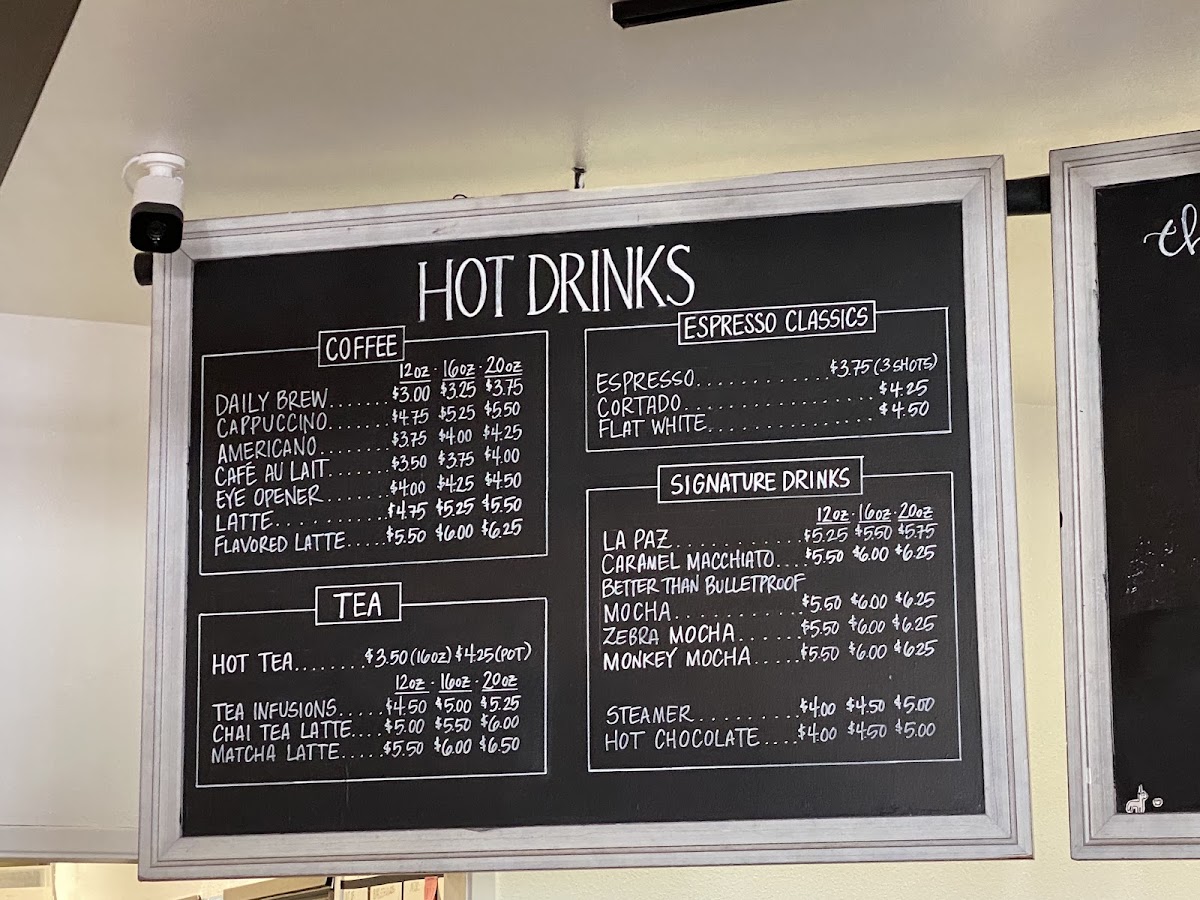 HOT DRINKS
COFFEE
12oz · 16oz · 20oz
DAILY BREW....... $3.00 $3.25 $3.75
CAPPUCCINO....... $4.75 $5.25 $5.50
AMERICANO........ $3.75 $4.00 $4.25
CAFÉ AU LAIT....... $3.50 $3.75 $4.00
EYE OPENER........ $4.00 $4.25 $4.50
LATTE............ $4.75 $5.25 $5.50
FLAVORED LATTE..... $5.50 $6.00 $6.25
TEA
HOT TEA........ $3.50 (16oz) $4.25 (POT)
12oz · 16oz · 20oz
TEA INFUSIONS..... $4.50 $5.00 $5.25
CHAI TEA LATTE.... $5.00 $5.50 $6.00
MATCHA LATTE..... $5.50 $6.00 $6.50
ESPRESSO CLASSICS
ESPRESSO............ $3.75 (3 SHOTS)
CORTADO................. $4.25
FLAT WHITE............... $4.50
SIGNATURE DRINKS
12oz · 16oz · 20oz
LA PAZ............ $5.25 $5.50 $5.75
CARAMEL MACCHIATO.... $5.50 $6.00 $6.25
BETTER THAN BULLETPROOF
MOCHA............ $5.50 $6.00 $6.25
ZEBRA MOCHA...... $5.50 $6.00 $6.25
MONKEY MOCHA..... $5.50 $6.00 $6.25
STEAMER.......... $4.00 $4.50 $5.00
HOT CHOCOLATE.... $4.00 $4.50 $5.00